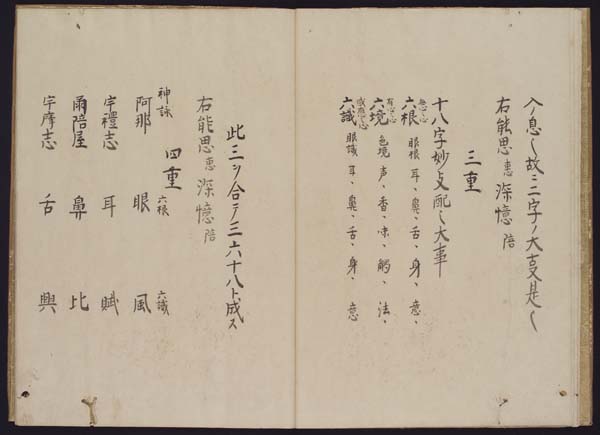 入ノ息也故ニ二字ノ大事是也
右能思惠深憶陪
三重
十八字妙支配之大事
六根 眼根、耳、鼻、舌、身、意、
六境 色境、声、香、味、觸、法、
六識 眼識、耳、鼻、舌、身、意
此三ツ合テ三六十八ト成ス
右能思惠深憶陪
四重
神詠 六根 六識
阿那 眼 風
宇禮志 耳 賦
爾陪屋 鼻 比
宇摩志 舌 興